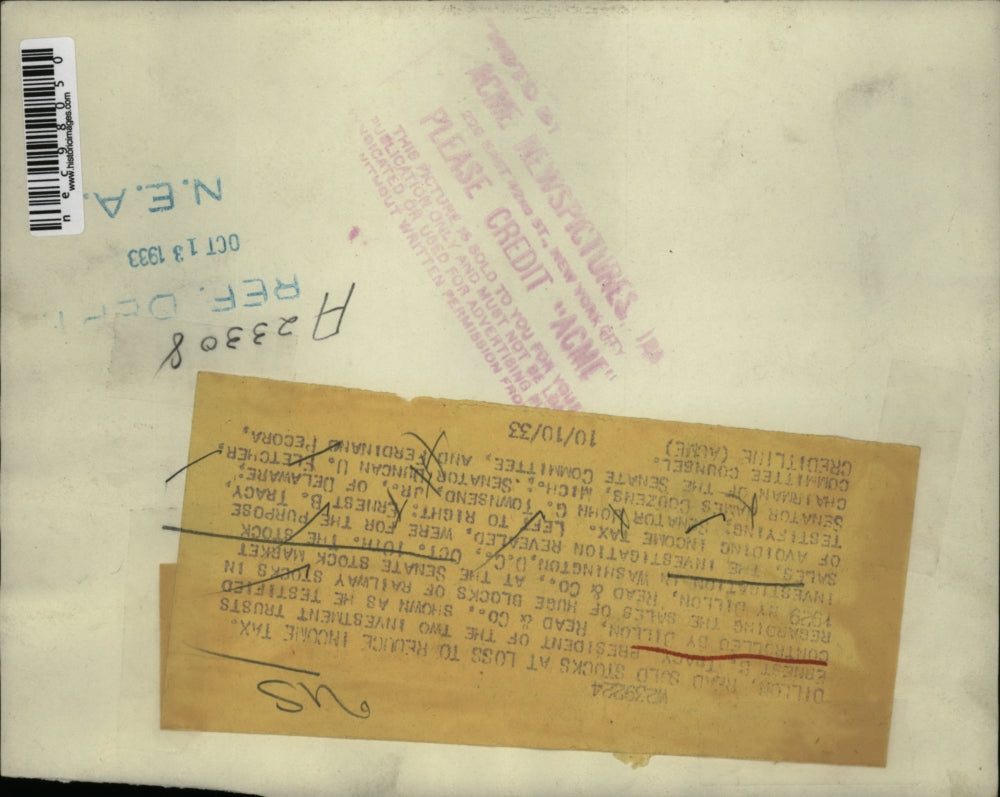 nec98050
www.historicimages.com
N.E.A.
OCT 13 1933
REF. DEPT.
A 23308
ACME NEWSPICTURES, INC
ST., NEW YORK CITY
PLEASE CREDIT "ACME"
THIS PICTURE IS SOLD TO YOU FOR YOUR
PUBLICATION ONLY AND MUST NOT BE
OR USED FOR ADVERTISING
WITHOUT WRITTEN PERMISSION FROM
US
W2392224
DILLON, READ SOLD STOCKS AT LOSS TO REDUCE INCOME TAX.
ERNEST B. TRACY, PRESIDENT OF THE TWO INVESTMENT TRUSTS
CONTROLLED BY DILLON, READ & CO., SHOWN AS HE TESTIFIED
REGARDING THE SALES OF HUGE BLOCKS OF RAILWAY STOCKS IN
1929 BY DILLON, READ & CO., AT THE SENATE STOCK MARKET
INVESTIGATION IN WASHINGTON, D.C., OCT. 10TH. THE STOCK
SALES, THE INVESTIGATION REVEALED, WERE FOR THE PURPOSE
OF AVOIDING INCOME TAX. LEFT TO RIGHT: ERNEST B. TRACY
TESTIFYING. SENATOR JOHN G. TOWNSEND, JR., OF DELAWARE;
SENATOR JAMES COUZENS, MICH.; SENATOR DUNCAN U. FLETCHER,
CHAIRMAN OF THE SENATE COMMITTEE, AND FERDINAND PECORA,
COMMITTEE COUNSEL.
CREDITLINE (ACME) 10/10/33